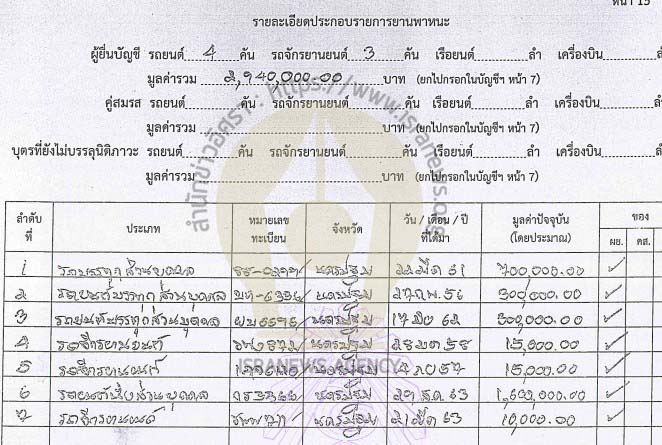 หน้า 15
รายละเอียดประกอบรายการยานพาหนะ
ผู้ยื่นบัญชี รถยนต์ 4 คัน รถจักรยานยนต์ 3 คัน เรือยนต์ ลำ เครื่องบิน
มูลค่ารวม 2,940,000.00 บาท (ยกไปกรอกในบัญชีฯ หน้า 7)
คู่สมรส รถยนต์ คัน รถจักรยานยนต์ คัน เรือยนต์ ลำ เครื่องบิน
มูลค่ารวม บาท (ยกไปกรอกในบัญชีฯ หน้า 7)
บุตรที่ยังไม่บรรลุนิติภาวะ รถยนต์ คัน รถจักรยานยนต์ คัน เรือยนต์ ลำ เครื่องบิน
มูลค่ารวม บาท (ยกไปกรอกในบัญชีฯ หน้า 7)
สำนักข่าวอิศรา : https://www.isranews.org
ลำดับที่ ประเภท หมายเลขทะเบียน จังหวัด วัน / เดือน / ปี ที่ได้มา มูลค่าปัจจุบัน (โดยประมาณ) ของ
ผย. คส.
1 รถบรรทุกส่วนบุคคล นครปฐม 61 700,000.00 ✓
2 รถยนต์บรรทุกส่วนบุคคล นครปฐม 27 ก.พ. 56 300,000.00 ✓
3 รถยนต์บรรทุกส่วนบุคคล นครปฐม 17 62 300,000.00 ✓
4 รถจักรยานยนต์ นครปฐม 58 15,000.00 ✓
5 รถจักรยานยนต์ นครปฐม 57 15,000.00 ✓
6 รถยนต์นั่งส่วนบุคคล นครปฐม 29 ธ.ค. 63 1,600,000.00 ✓
7 รถจักรยานยนต์ นครปฐม 21 63 10,000.00 ✓
ISRANEWS AGENCY